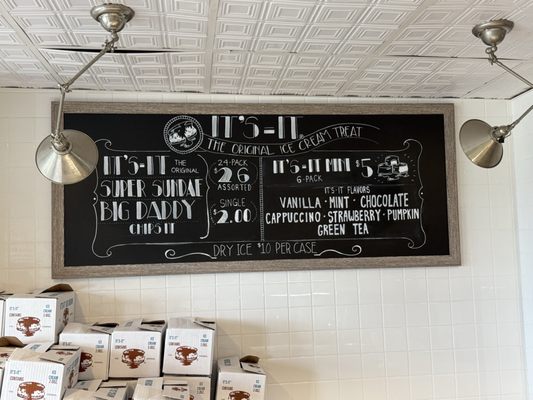 IT'S-IT
THE ORIGINAL ICE CREAM TREAT
IT'S-IT THE ORIGINAL
SUPER SUNDAE
BIG DADDY
CHIPS IT
24-PACK
$26
ASSORTED
SINGLE
$2.00
IT'S-IT MINI $5
6-PACK
IT'S-IT FLAVORS
VANILLA · MINT · CHOCOLATE
CAPPUCCINO · STRAWBERRY · PUMPKIN
GREEN TEA
DRY ICE $10 PER CASE